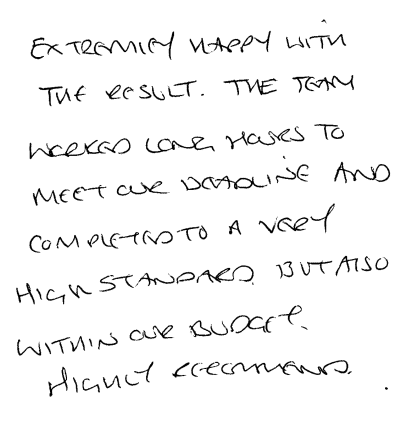 EXTREMELY HAPPY WITH
THE RESULT. THE TEAM
WORKED LONG HOURS TO
MEET OUR DEADLINE AND
COMPLETED TO A VERY
HIGH STANDARD. BUT ALSO
WITHIN OUR BUDGET.
HIGHLY RECOMMEND.